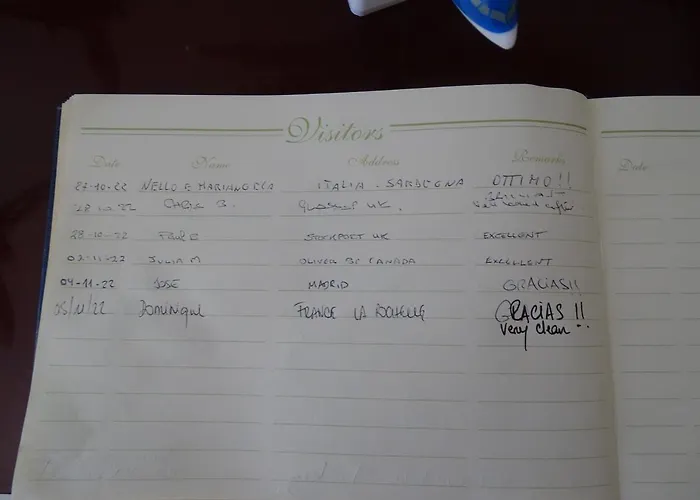 Visitors
Date Name Address Remarks Date
27-10-22 NELLO E ITALIA - SARDEGNA OTTIMO!!
28-10-22 CHRIS B. UK.
28-10-22 PAUL STOCKPORT UK EXCELLENT
02-11-22 JULIA M OLIVER BC CANADA EXCELLENT
04-11-22 JOSE MADRID GRACIAS!!
05/11/22 DOMINIQUE FRANCE LA ROCHELLE GRACIAS !!
Very clean !!